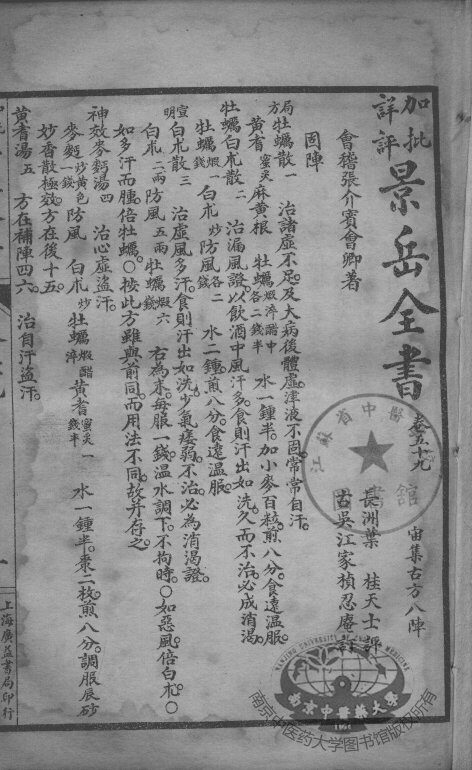 加批詳評 景岳全書 卷五十九 宙集古方八陣
會稽張介賓會卿著
長洲葉 桂天士評
古吳江家楨忍庵訂
固陣
局方牡蠣散一 治諸虛不足及大病後體虛津液不固常常自汗
黃耆蜜炙 麻黃根 牡蠣煅淬醋中各二錢半 水一鍾半加小麥百粒煎八分食遠溫服
牡蠣白朮散二 治漏風證以飲酒中風汗多食則汗出如洗久而不治必成消渴
牡蠣煅一錢 白朮炒 防風各二錢 水二鍾煎八分食遠溫服
宣明白朮散三 治虛風多汗食則汗出如洗少氣痿弱不治必為消渴證
白朮二兩 防風五兩 牡蠣煅六錢 右為末每服一錢溫水調下不拘時〇如惡風倍白朮〇
如多汗面腫倍牡蠣〇按此方雖與前同而用法不同故并存之
神效麥麪湯四 治心虛盜汗
麥麪炒黃色 防風 白朮炒 牡蠣煅醋淬 黃耆蜜炙一錢半 水一鍾半棗二枚煎八分調服辰砂
妙香散極效方在後十五
黃耆湯五 方在補陣四六 治自汗盜汗
上海廣益書局印行
江蘇省中醫 圖書館
NANJING UNIVERSITY OF CHINESE MEDICINE
南京中醫藥大學
1954
南京中医药大学图书馆版权所有